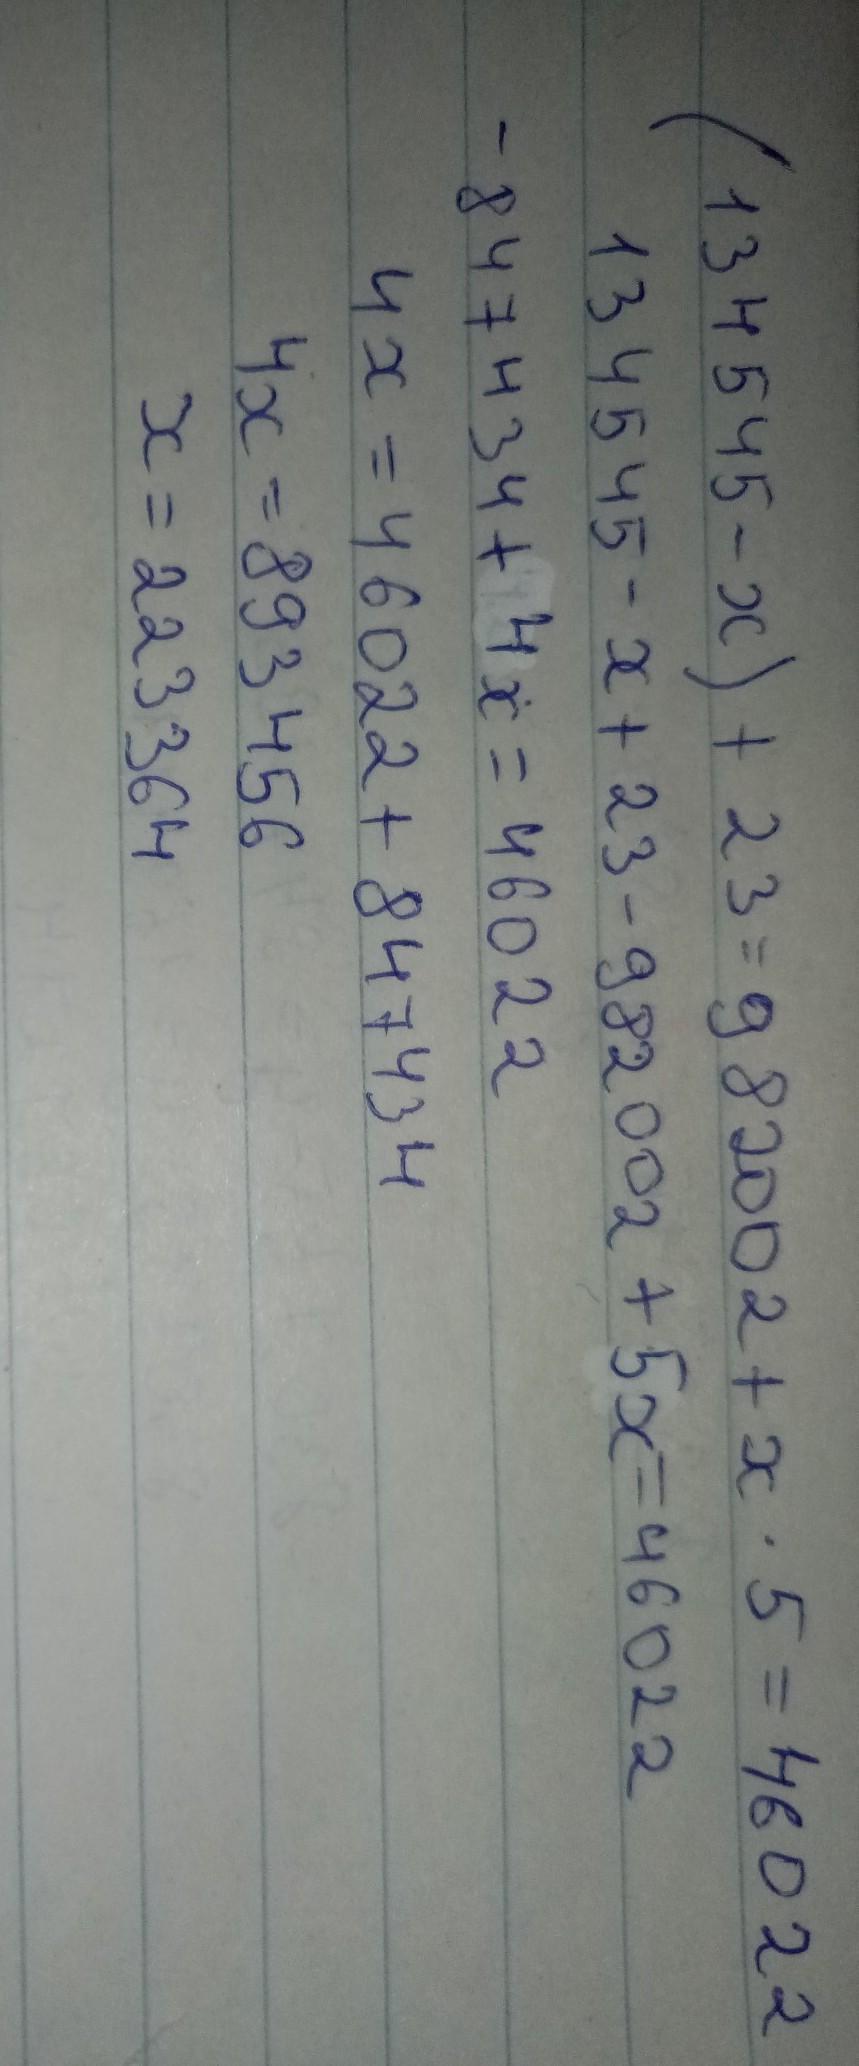 (134545-x)+23=982002+x·5=46022
134545-x+23-982002+5x=46022
-847434+4x=46022
4x=46022+847434
4x=893456
x=223364